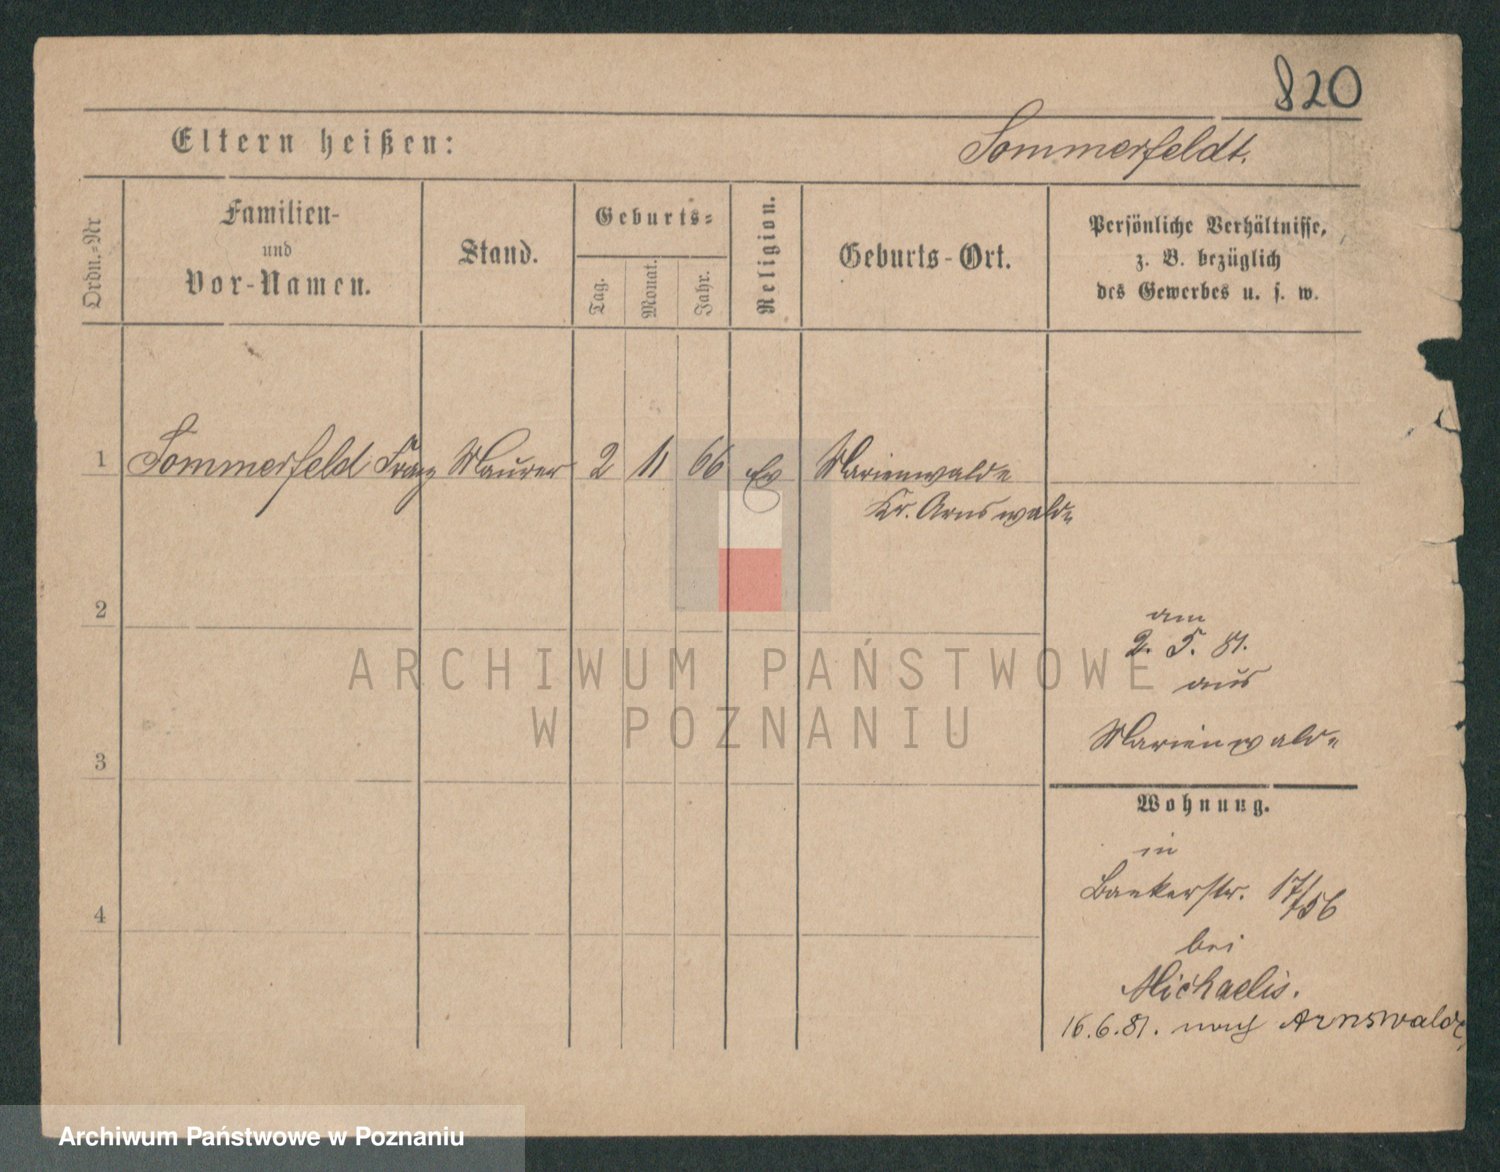 820
Eltern heißen:
Sommerfeldt.
Ordn.-Nr
Familien-
und
Vor-Namen.
Stand.
Geburts-
Tag.
Monat.
Jahr.
Religion.
Geburts-Ort.
Persönliche Verhältnisse,
z. B. bezüglich
des Gewerbes u. s. w.
1 Sommerfeld Franz Maurer 2 11 66 Ev Marienwalde
Kr. Arnswalde
2
am
2. 5. 81.
aus
Marienwalde
3
Wohnung.
in
Baekerstr. 17/156
4
bei
Michaelis.
16.6.81. nach Arnswalde
ARCHIWUM PAŃSTWOWE
W POZNANIU
Archiwum Państwowe w Poznaniu